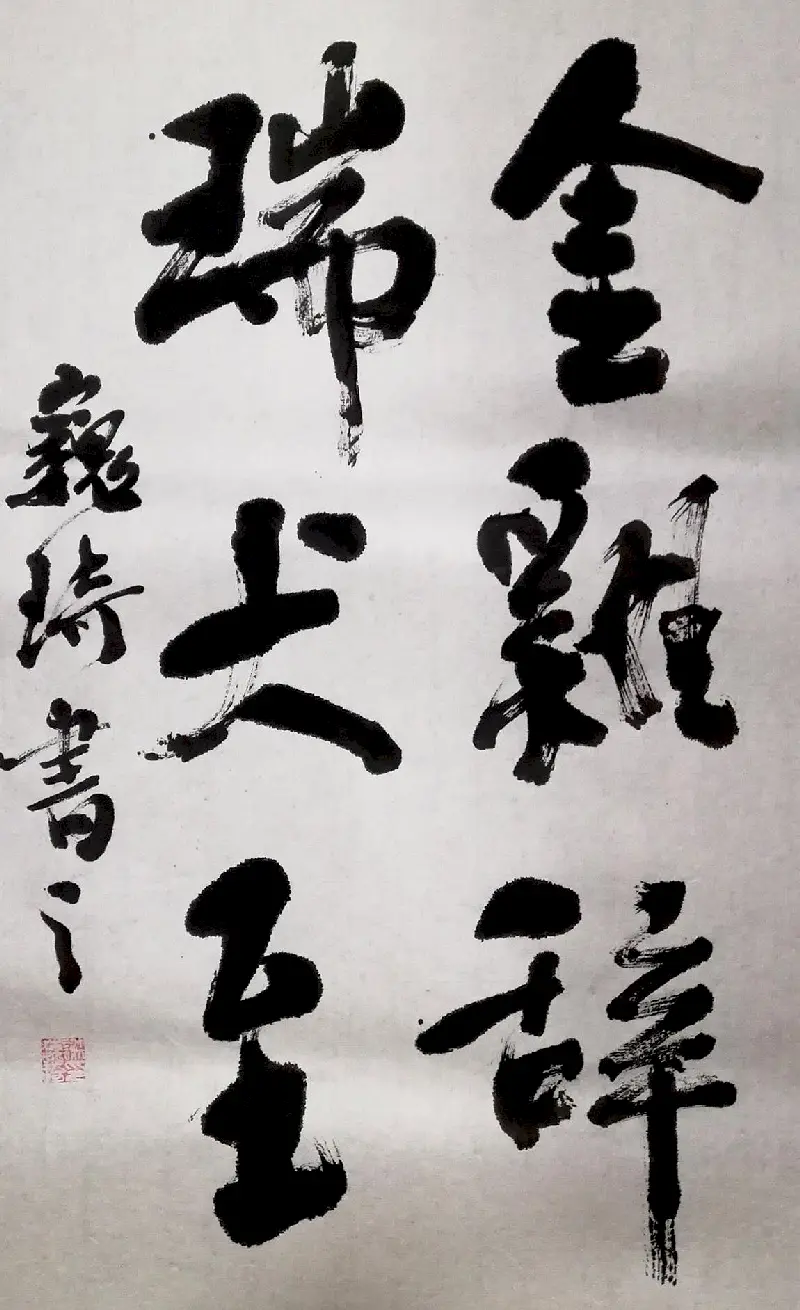 金雞辞
瑞犬至
巍琦書之